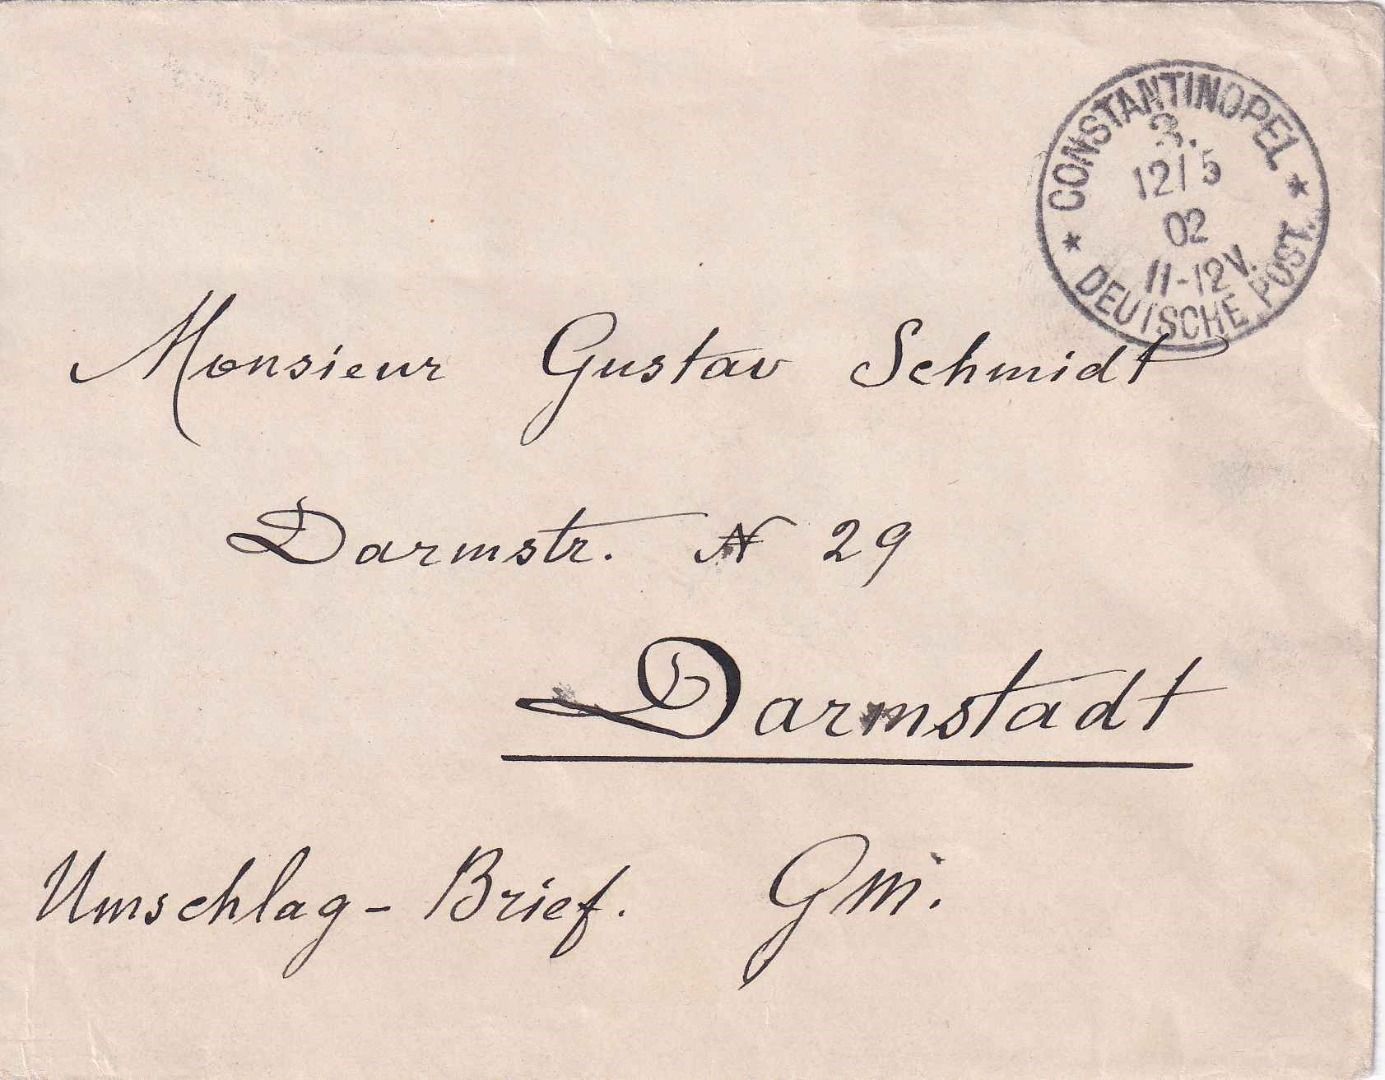 CONSTANTINOPEL
3.
12/5
02
11-12V.
* DEUTSCHE POST. *
Monsieur Gustav Schmidt
Darmstr. N 29
Darmstadt
Umschlag - Brief. Gm.